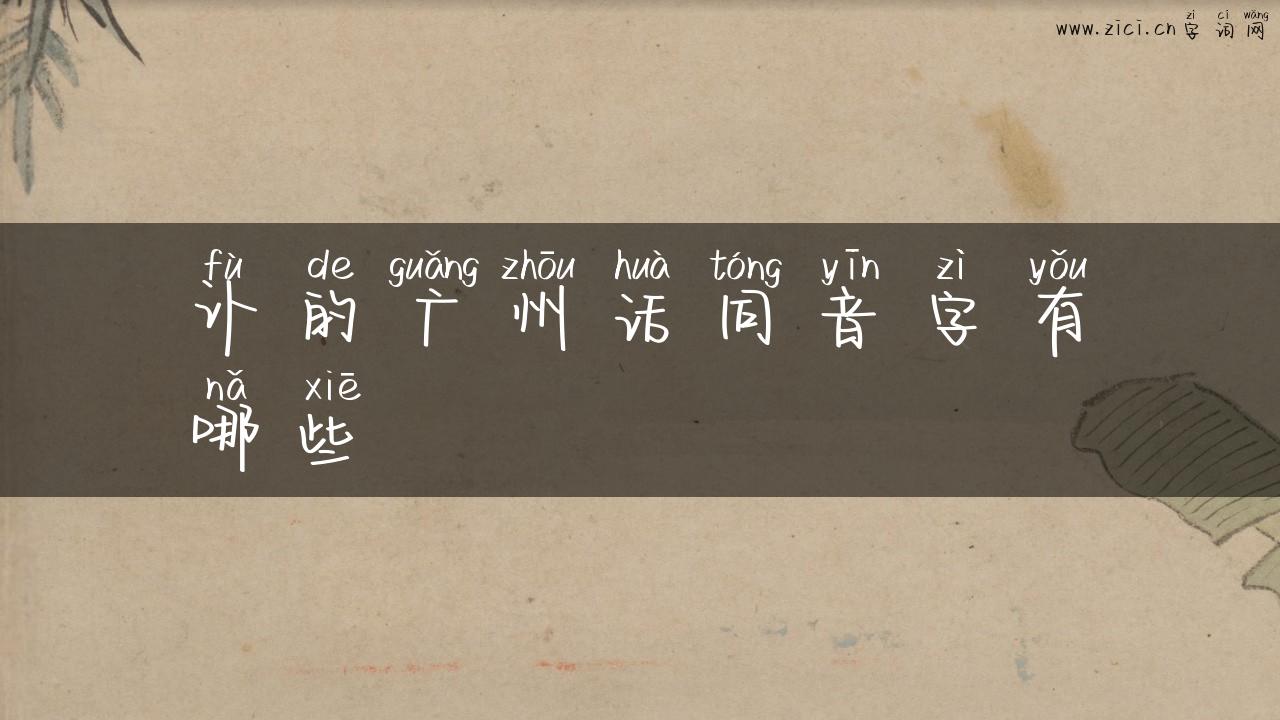 zì cí wǎng
www.zici.cn 字词网
fù de guǎng zhōu huà tóng yīn zì yǒu
讣的广州话同音字有
nǎ xiē
哪些